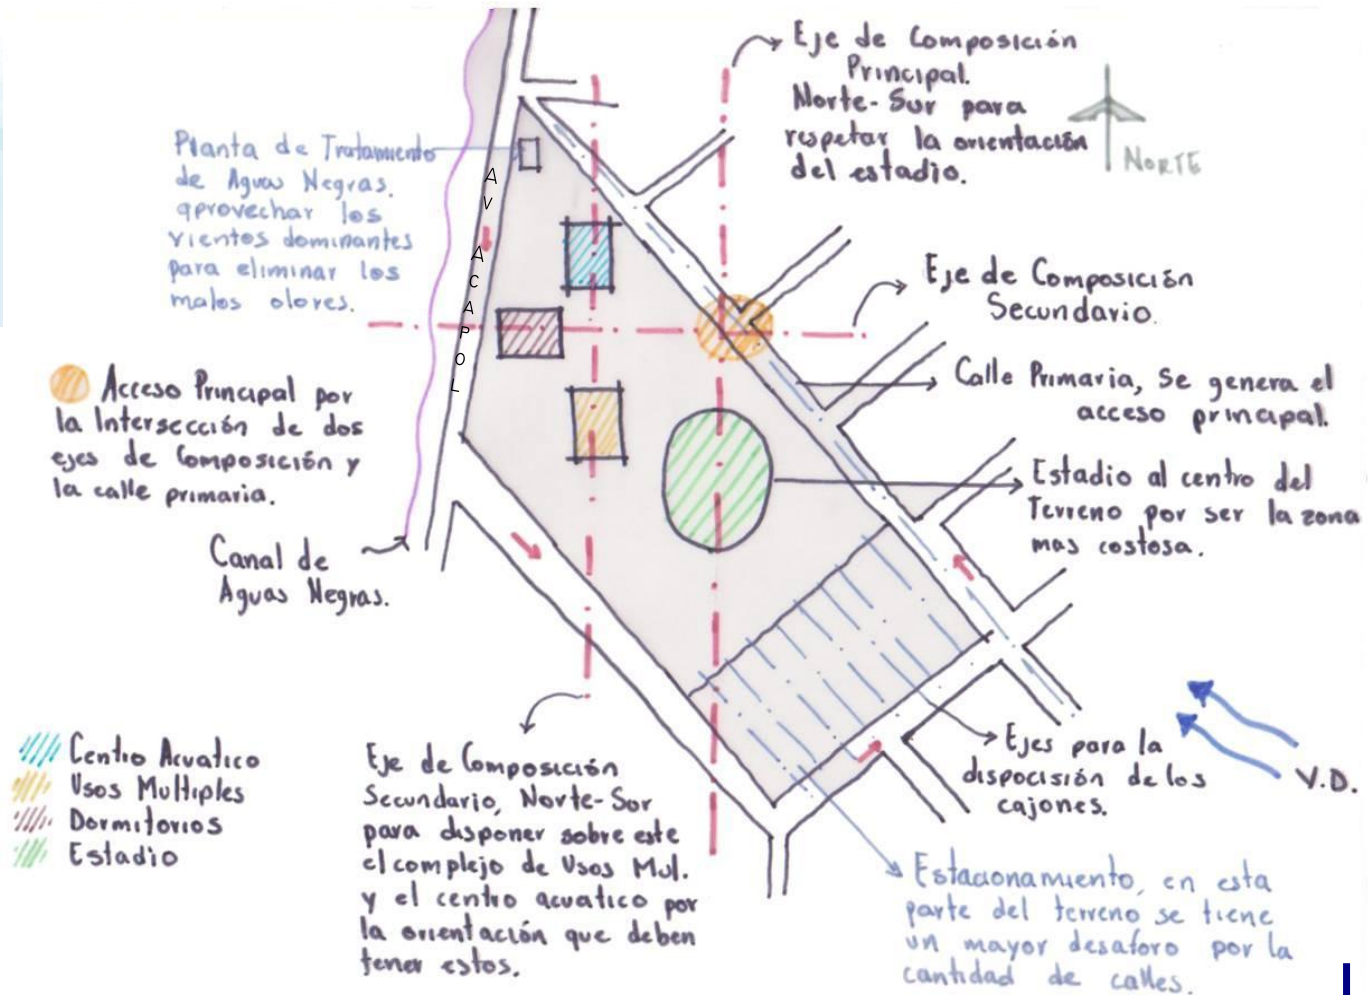 Eje de Composición
Principal.
Norte-Sur para
respetar la orientación
del estadio.
NORTE
Planta de Tratamiento
de Aguas Negras.
aprovechar los
vientos dominantes
para eliminar los
malos olores.
AV ACAPOL
Eje de Composición
Secundario.
Calle Primaria, Se genera el
acceso principal.
Acceso Principal por
la Intersección de dos
ejes de Composición y
la calle primaria.
Estadio al centro del
Terreno por ser la zona
mas costosa.
Canal de
Aguas Negras.
Centro Acuatico
Usos Multiples
Dormitorios
Estadio
Eje de Composición
Secundario, Norte-Sur
para disponer sobre este
el complejo de Usos Mul.
y el centro acuatico por
la orientación que deben
tener estos.
Ejes para la
dispocisión de los
cajones.
V.D.
Estacionamiento, en esta
parte del terreno se tiene
un mayor desaforo por la
cantidad de calles.